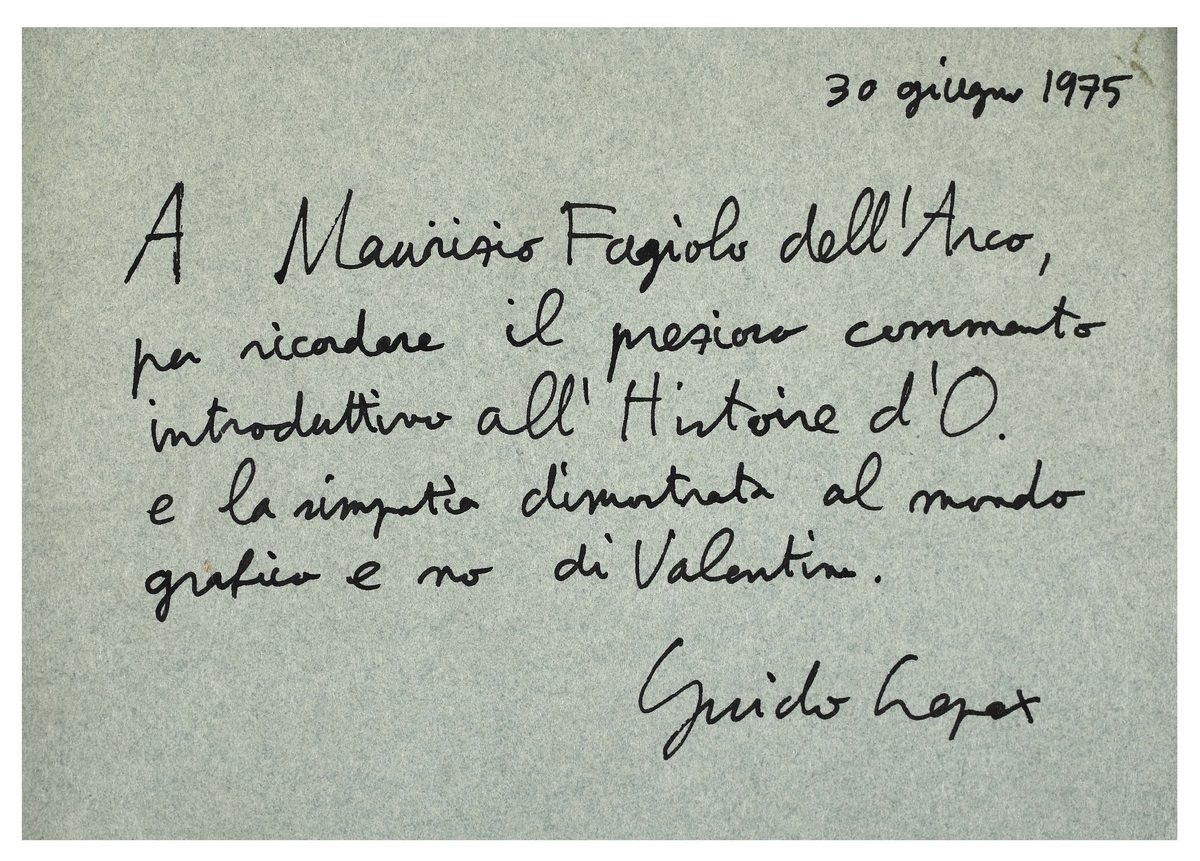 30 giugno 1975
A Maurizio Fagiolo dell'Arco,
per ricordare il prezioso commento
introduttivo all'Histoire d'O.
e la simpatia dimostrata al mondo
grafico e no di Valentina.
Guido Crepax